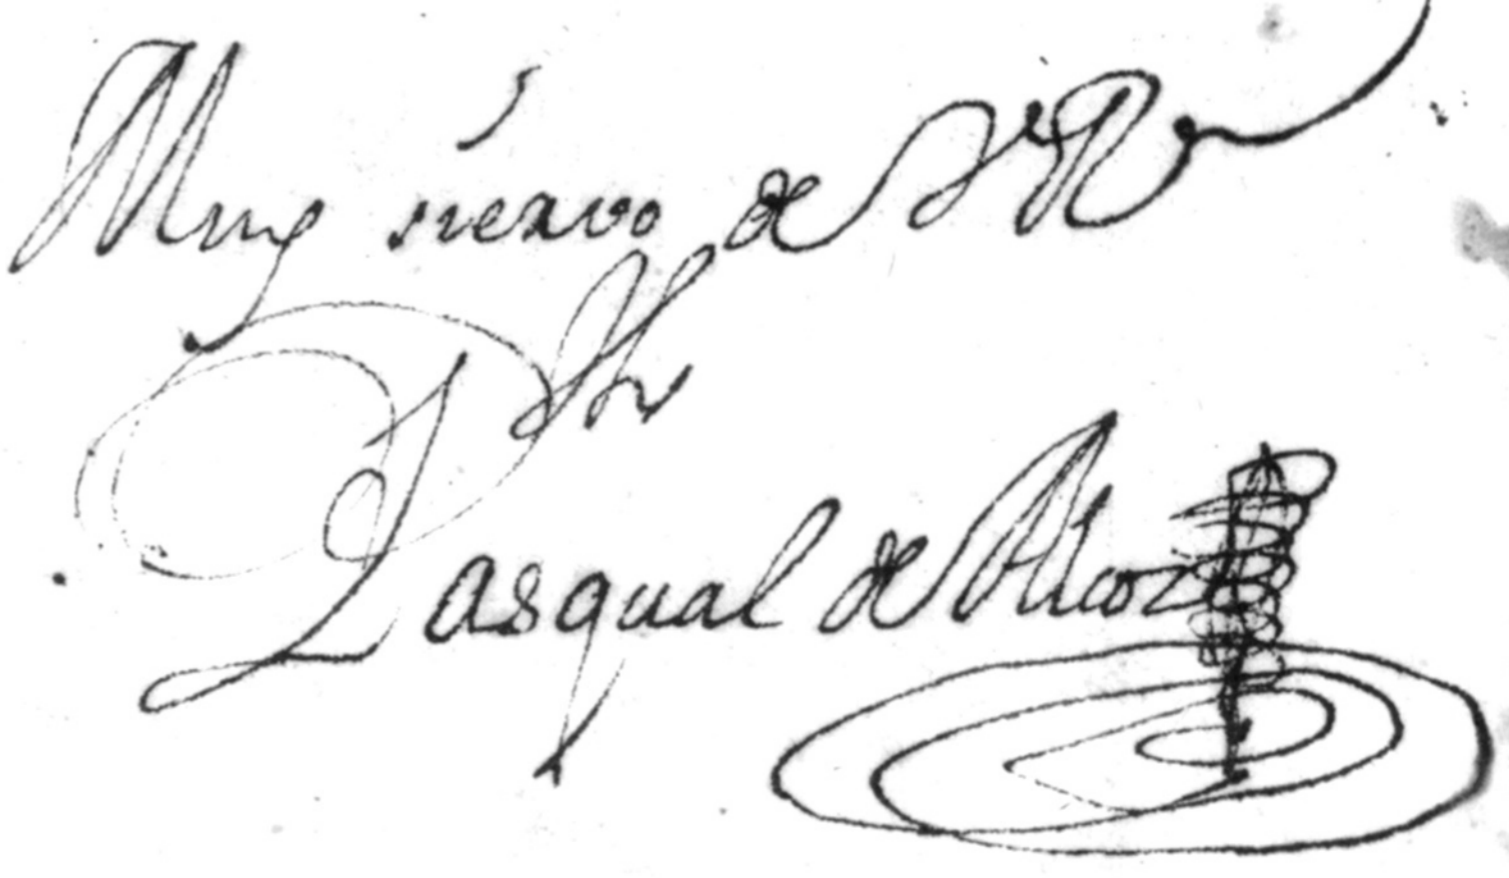 Muy siervo de VR
Fr
Pasqual de Alcoz